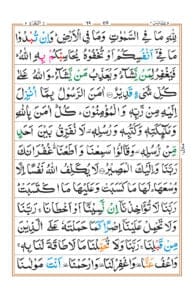 لِلّٰهِ مَا فِی السَّمٰوٰتِ وَمَا فِی الْاَرْضِ ؕ وَاِنْ تُبْدُوْا
مَا فِیْۤ اَنْفُسِكُمْ اَوْ تُخْفُوْهُ یُحَاسِبْكُمْ بِهِ اللّٰهُ ؕ
فَیَغْفِرُ لِمَنْ یَّشَآءُ وَیُعَذِّبُ مَنْ یَّشَآءُ ؕ وَاللّٰهُ عَلٰی
كُلِّ شَیْءٍ قَدِیْرٌ ۝ اٰمَنَ الرَّسُوْلُ بِمَاۤ اُنْزِلَ
اِلَیْهِ مِنْ رَّبِّهٖ وَالْمُؤْمِنُوْنَ ؕ كُلٌّ اٰمَنَ بِاللّٰهِ
وَمَلٰٓئِكَتِهٖ وَكُتُبِهٖ وَرُسُلِهٖ ۟ لَا نُفَرِّقُ بَیْنَ اَحَدٍ
مِّنْ رُّسُلِهٖ ۟ وَقَالُوْا سَمِعْنَا وَاَطَعْنَا ٭۫ غُفْرَانَكَ
رَبَّنَا وَاِلَیْكَ الْمَصِیْرُ ۝ لَا یُكَلِّفُ اللّٰهُ نَفْسًا اِلَّا
وُسْعَهَا ؕ لَهَا مَا كَسَبَتْ وَعَلَیْهَا مَا اكْتَسَبَتْ ؕ
رَبَّنَا لَا تُؤَاخِذْنَاۤ اِنْ نَّسِیْنَاۤ اَوْ اَخْطَاْنَا ۚ رَبَّنَا
وَلَا تَحْمِلْ عَلَیْنَاۤ اِصْرًا كَمَا حَمَلْتَهٗ عَلَی الَّذِیْنَ
مِنْ قَبْلِنَا ۚ رَبَّنَا وَلَا تُحَمِّلْنَا مَا لَا طَاقَةَ لَنَا بِهٖ ۚ
وَاعْفُ عَنَّا ۥ وَاغْفِرْ لَنَا ۥ وَارْحَمْنَا ۥ اَنْتَ مَوْلٰىنَا